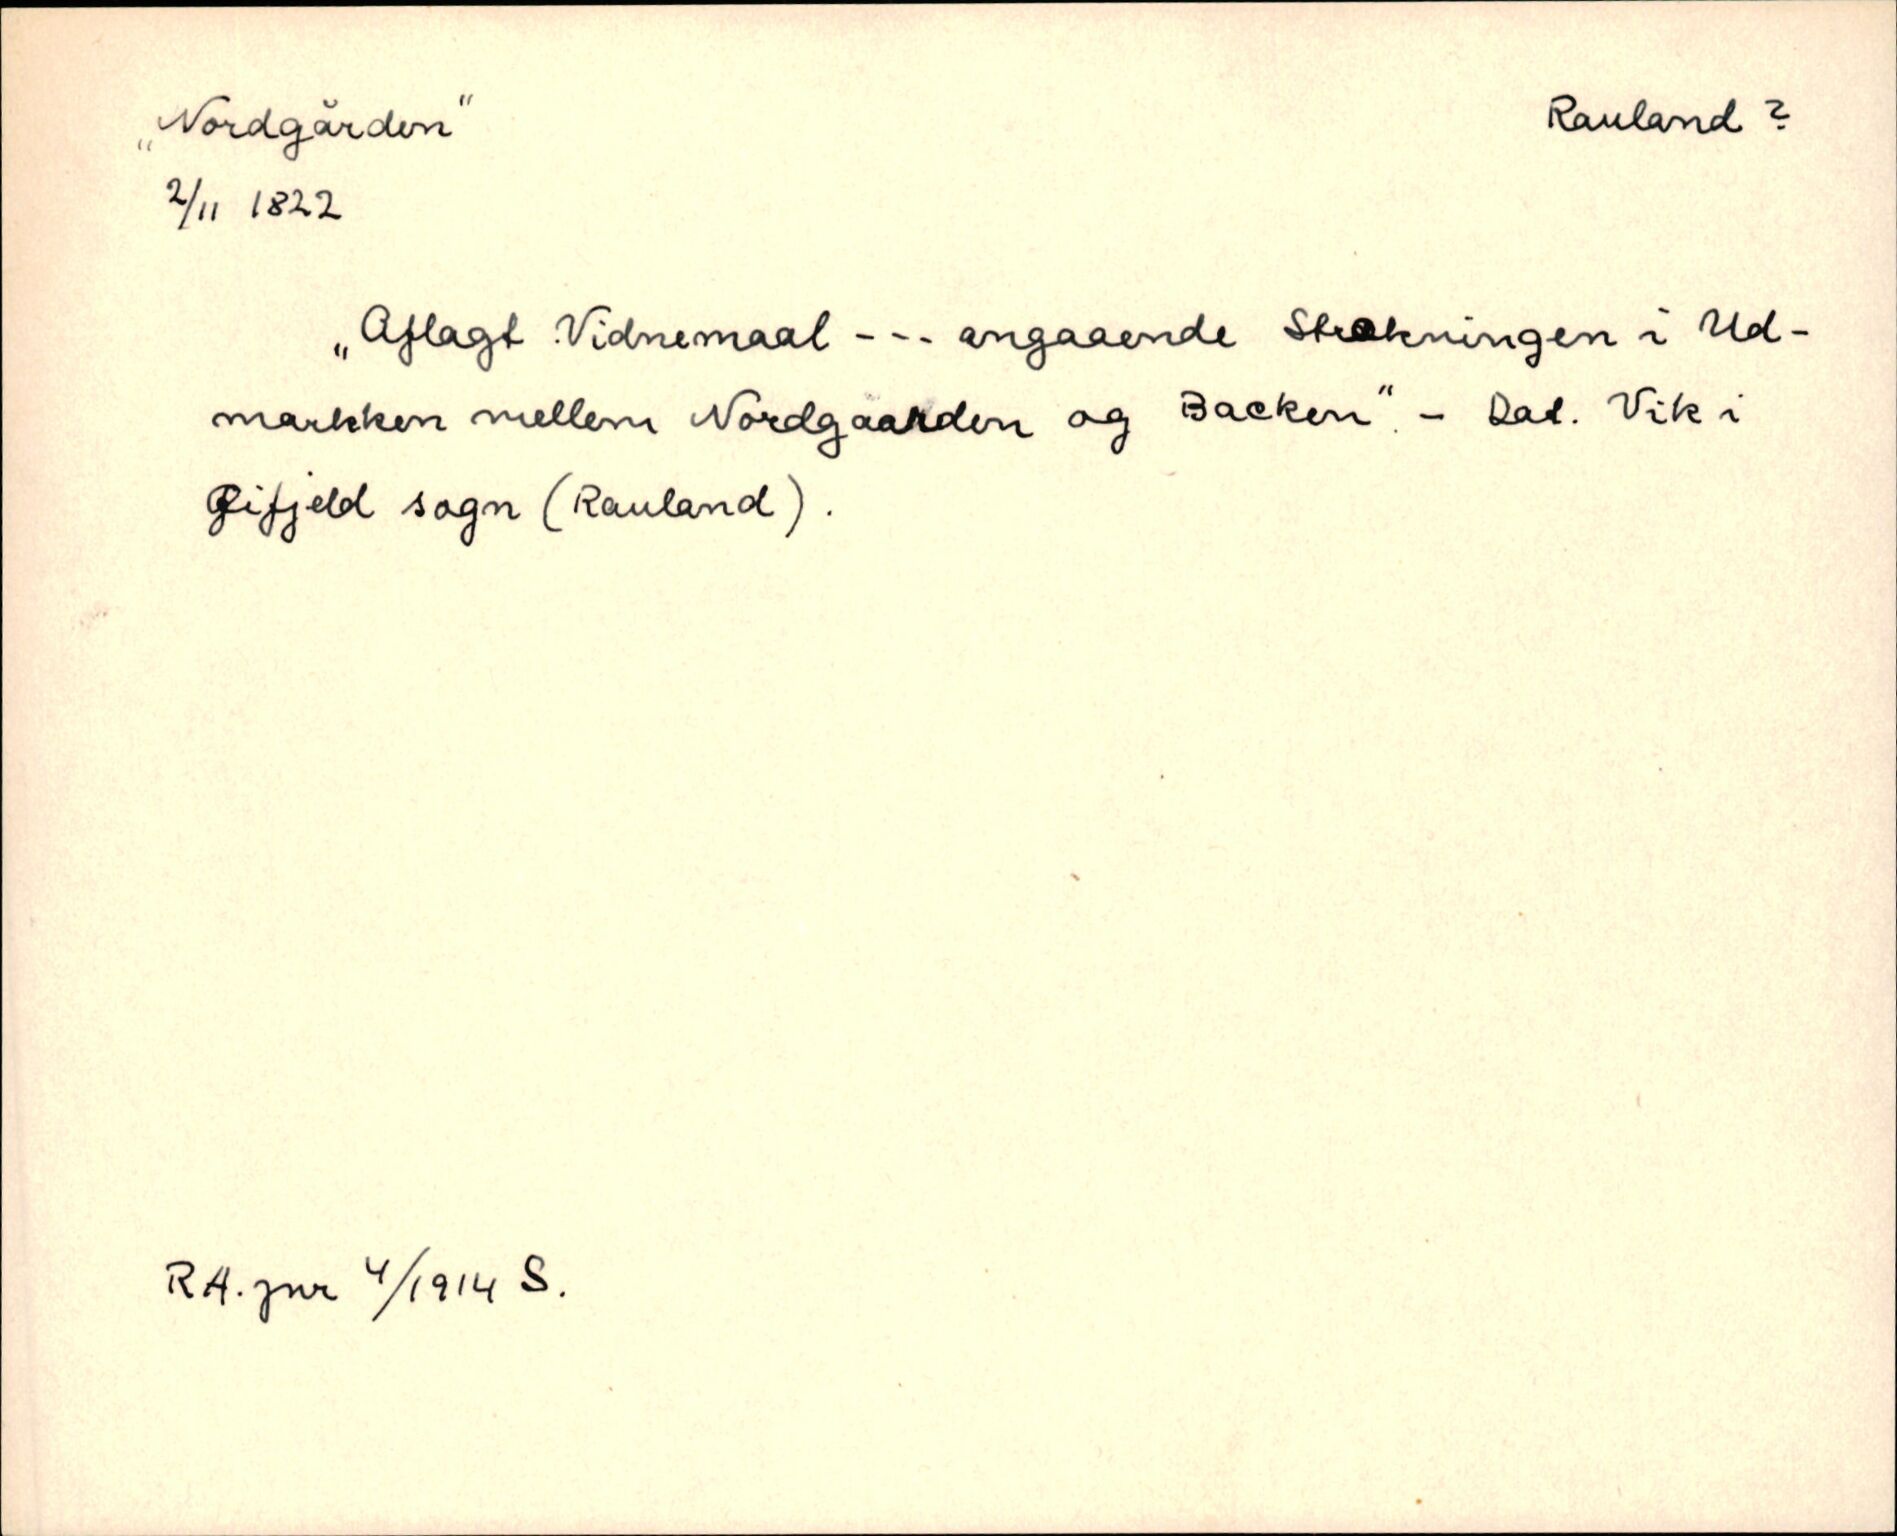 „Nordgården“ Rauland ?
2/11 1822
„Aflagt Vidnemaal --- angaaende Strekningen i Ud-
markken mellem Nordgaarden og Backen“. - Dat. Vik i
sogn (Rauland).
RA. jnr 4/1914 S.